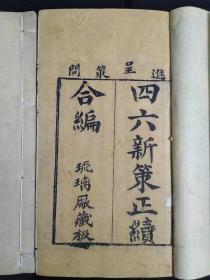 進呈策問
四六新策正續
合編
琉璃厰藏板